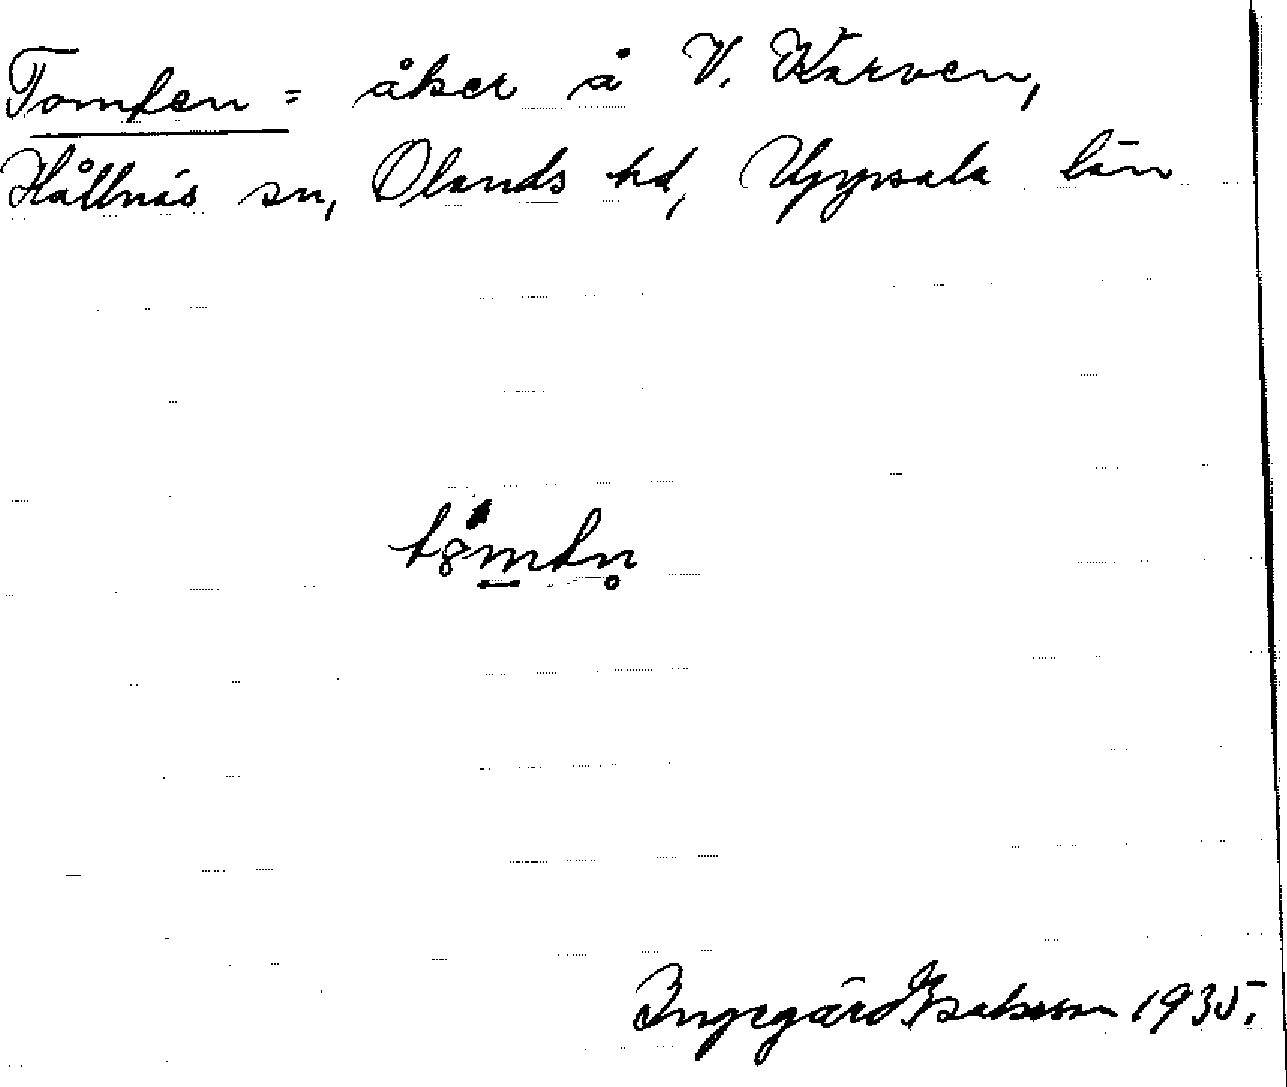 Tomten = åker å V. Karven,
Hållnäs sn, Olands hd, Uppsala län
Ingegärd Isaksson 1935.